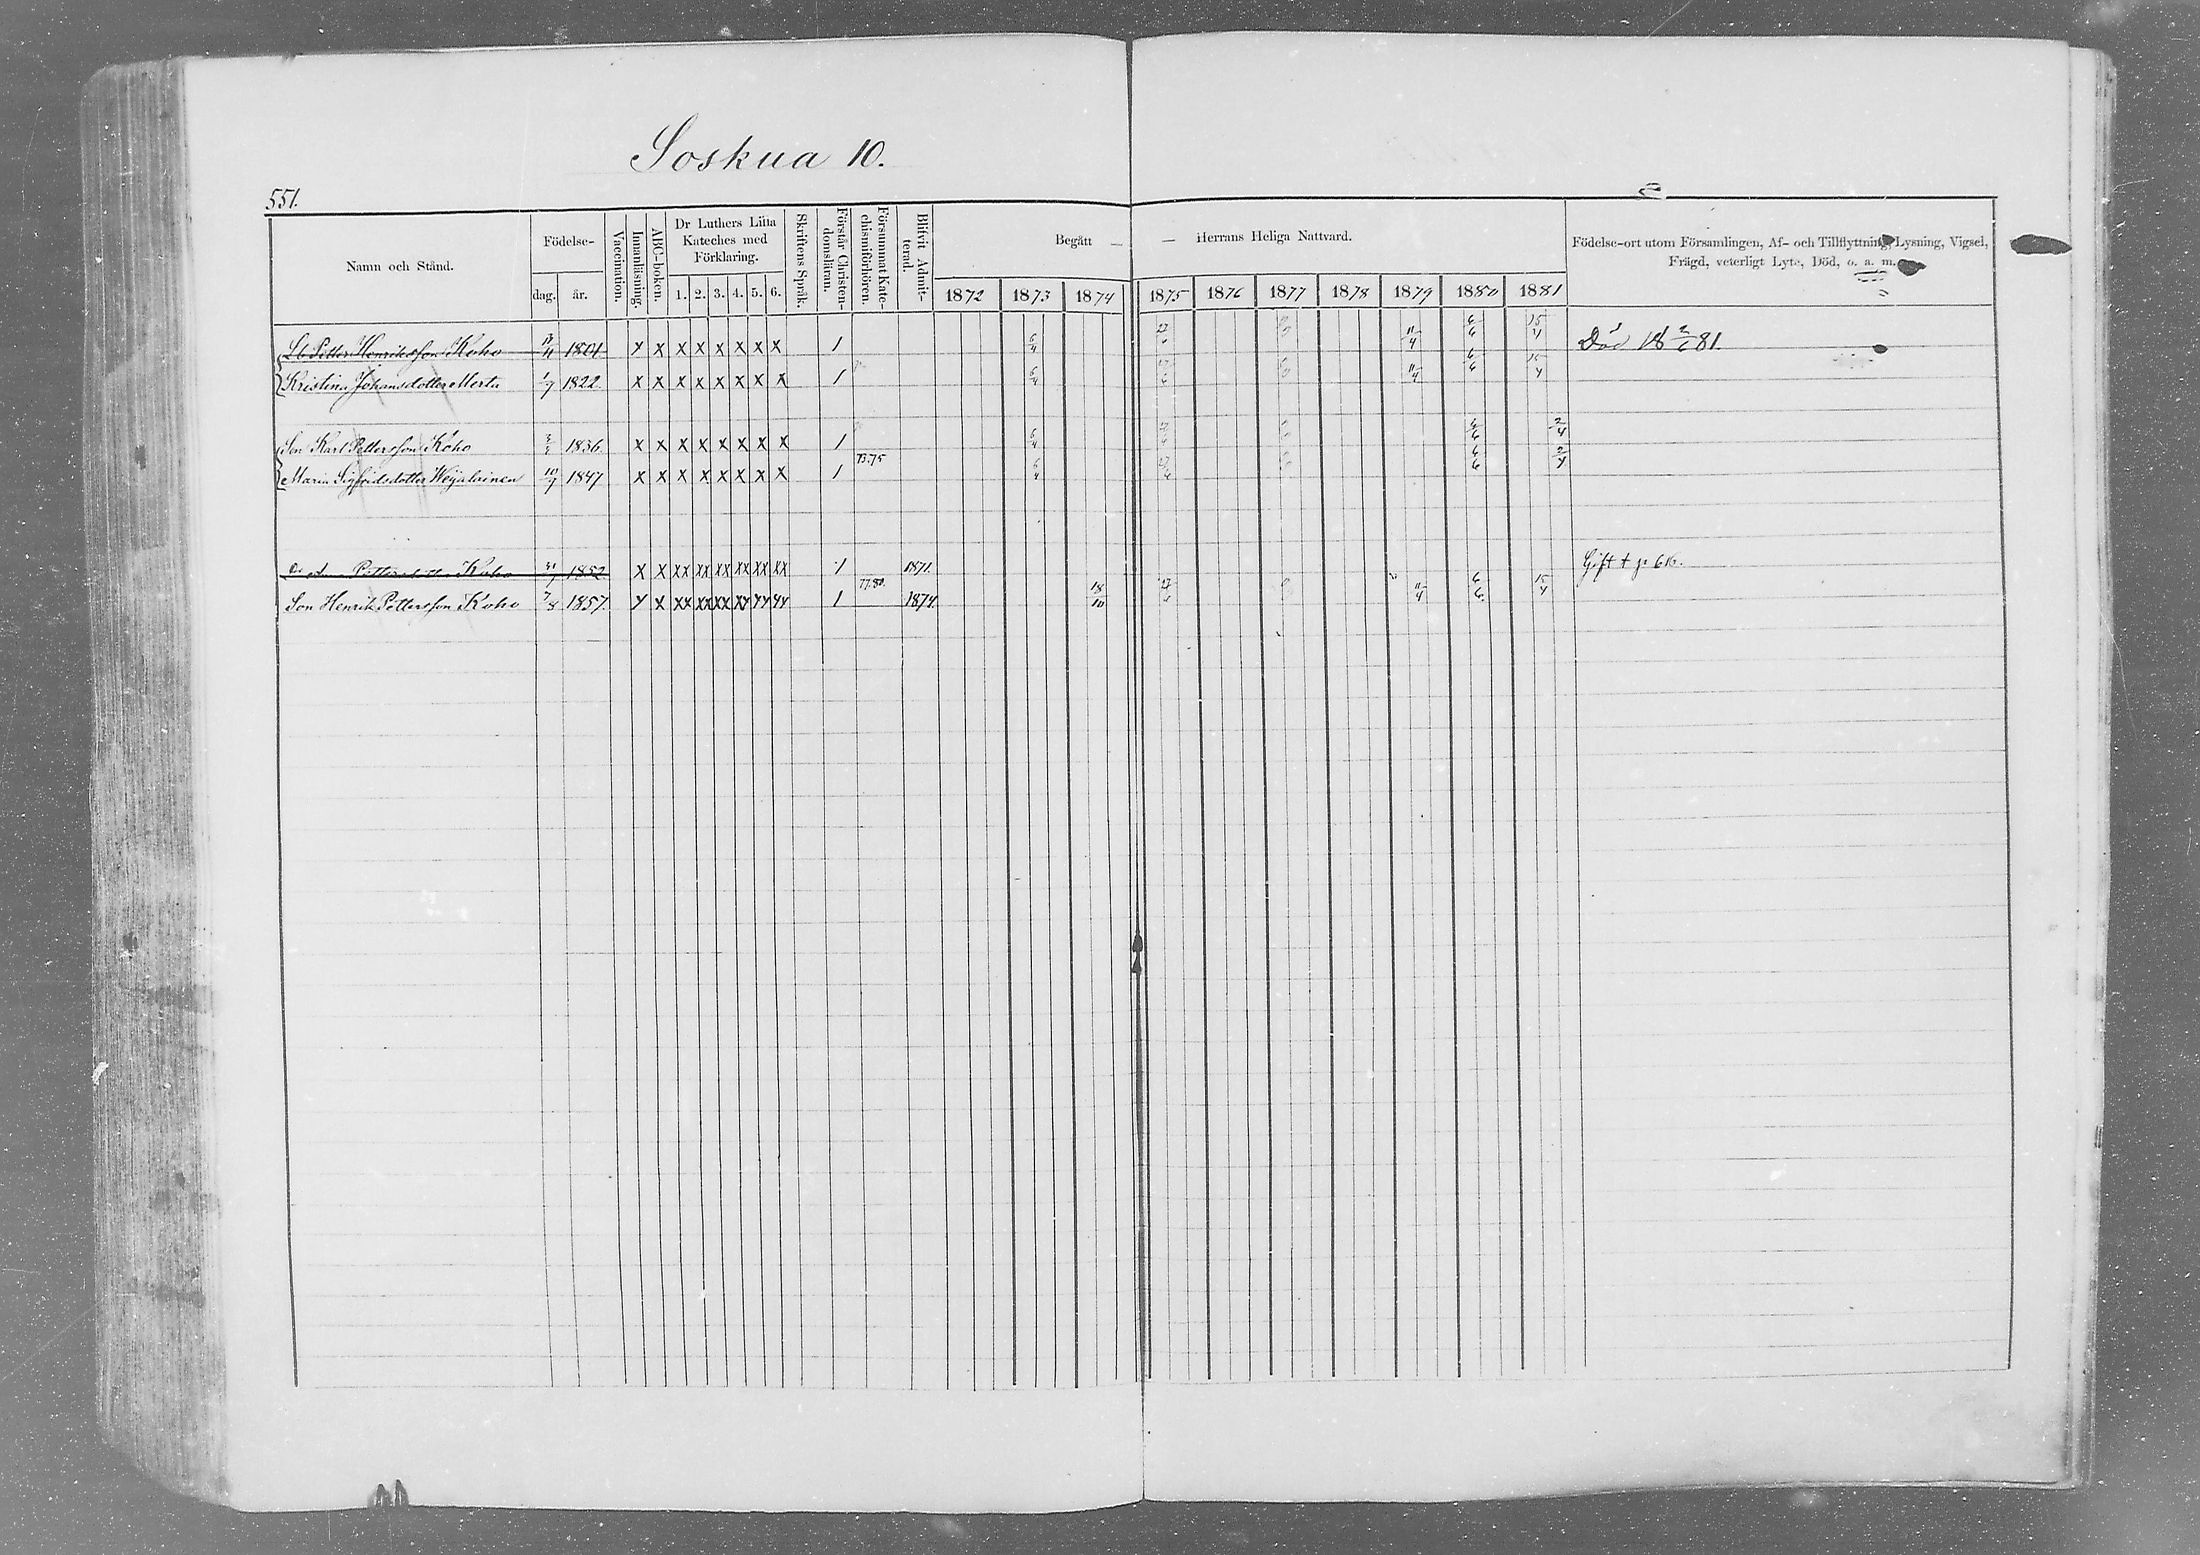 Soskua 10.
551.
Namn och Stånd.
Födelse-
dag. år.
Vaccination.
Innanläsning.
ABC-boken.
Dr Luthers Lilla Kateches med Förklaring.
1. 2. 3. 4. 5. 6.
Skriftens Språk.
Förstår Christen-domsläran.
Försummat Kate-chismiförhören.
Blifvit Admit-terad.
Begått — — Herrans Heliga Nattvard.
1872 1873 1874 1875 1876 1877 1878 1879 1880 1881
Födelse-ort utom Församlingen, Af- och Tillflyttning, Lysning, Vigsel,
Frägd, veterligt Lyte, Död, o. a. m.
Petter Henriksson Koho 1801 x x x x x x x x 1 6/4 11/4 6/6 15/4 Död 18 81.
Kristina Johansdotter Merta 1/7 1822. x x x x x x x x 1 6/4 11/4 6/6 15/4
Son Karl Pettersson Koho 1836. x x x x x x x x 1 6/4 6/6 2/4
73.75
Maria Sigfridsdotter Weijalainen 10/7 1847 x x x x x x x x 1 6/4 27/6 6/6 2/4
Pettersdotter Koho 1852 x x xx xx xx xx xx xx 1 1871. Gift
77.80.
Son Henrik Pettersson Koho 7/8 1857. x x xx xx xx xx xx xx 1 1874. 18/10 11/4 6/6 15/4